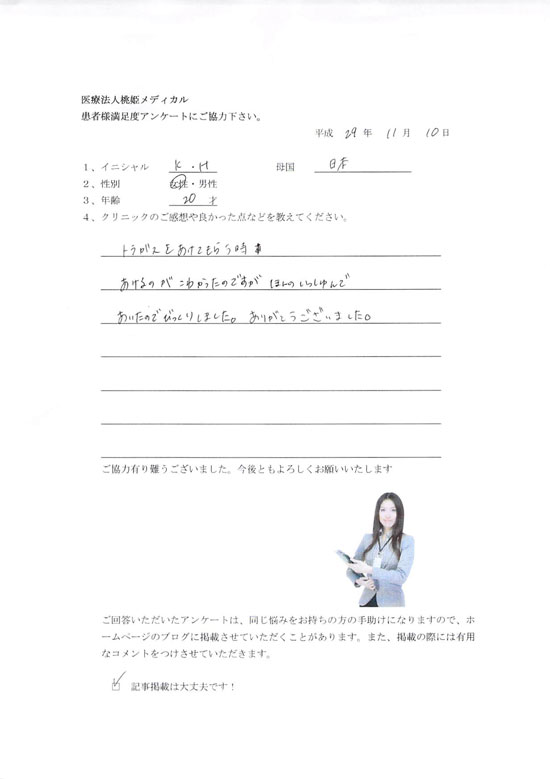 医療法人桃姫メディカル
患者様満足度アンケートにご協力下さい。
平成 29 年 11 月 10 日
1、イニシャル K・M 母国 日本
2、性別 女性・男性
3、年齢 20 才
4、クリニックのご感想や良かった点などを教えてください。
トラガスをあけてもらう時
あけるのが こわかったのですが ほんのいっしゅんで
あいたのでびっくりしました。ありがとうございました。
ご協力有り難うございました。今後ともよろしくお願いいたします
ご回答いただいたアンケートは、同じ悩みをお持ちの方の手助けになりますので、ホ
ームページのブログに掲載させていただくことがあります。また、掲載の際には有用
なコメントをつけさせていただきます。
☑ 記事掲載は大丈夫です！